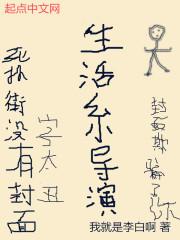 起点中文网
生活系导演
死扑街没有封面
字太丑
封面斯骗了你
我就是李白啊 著